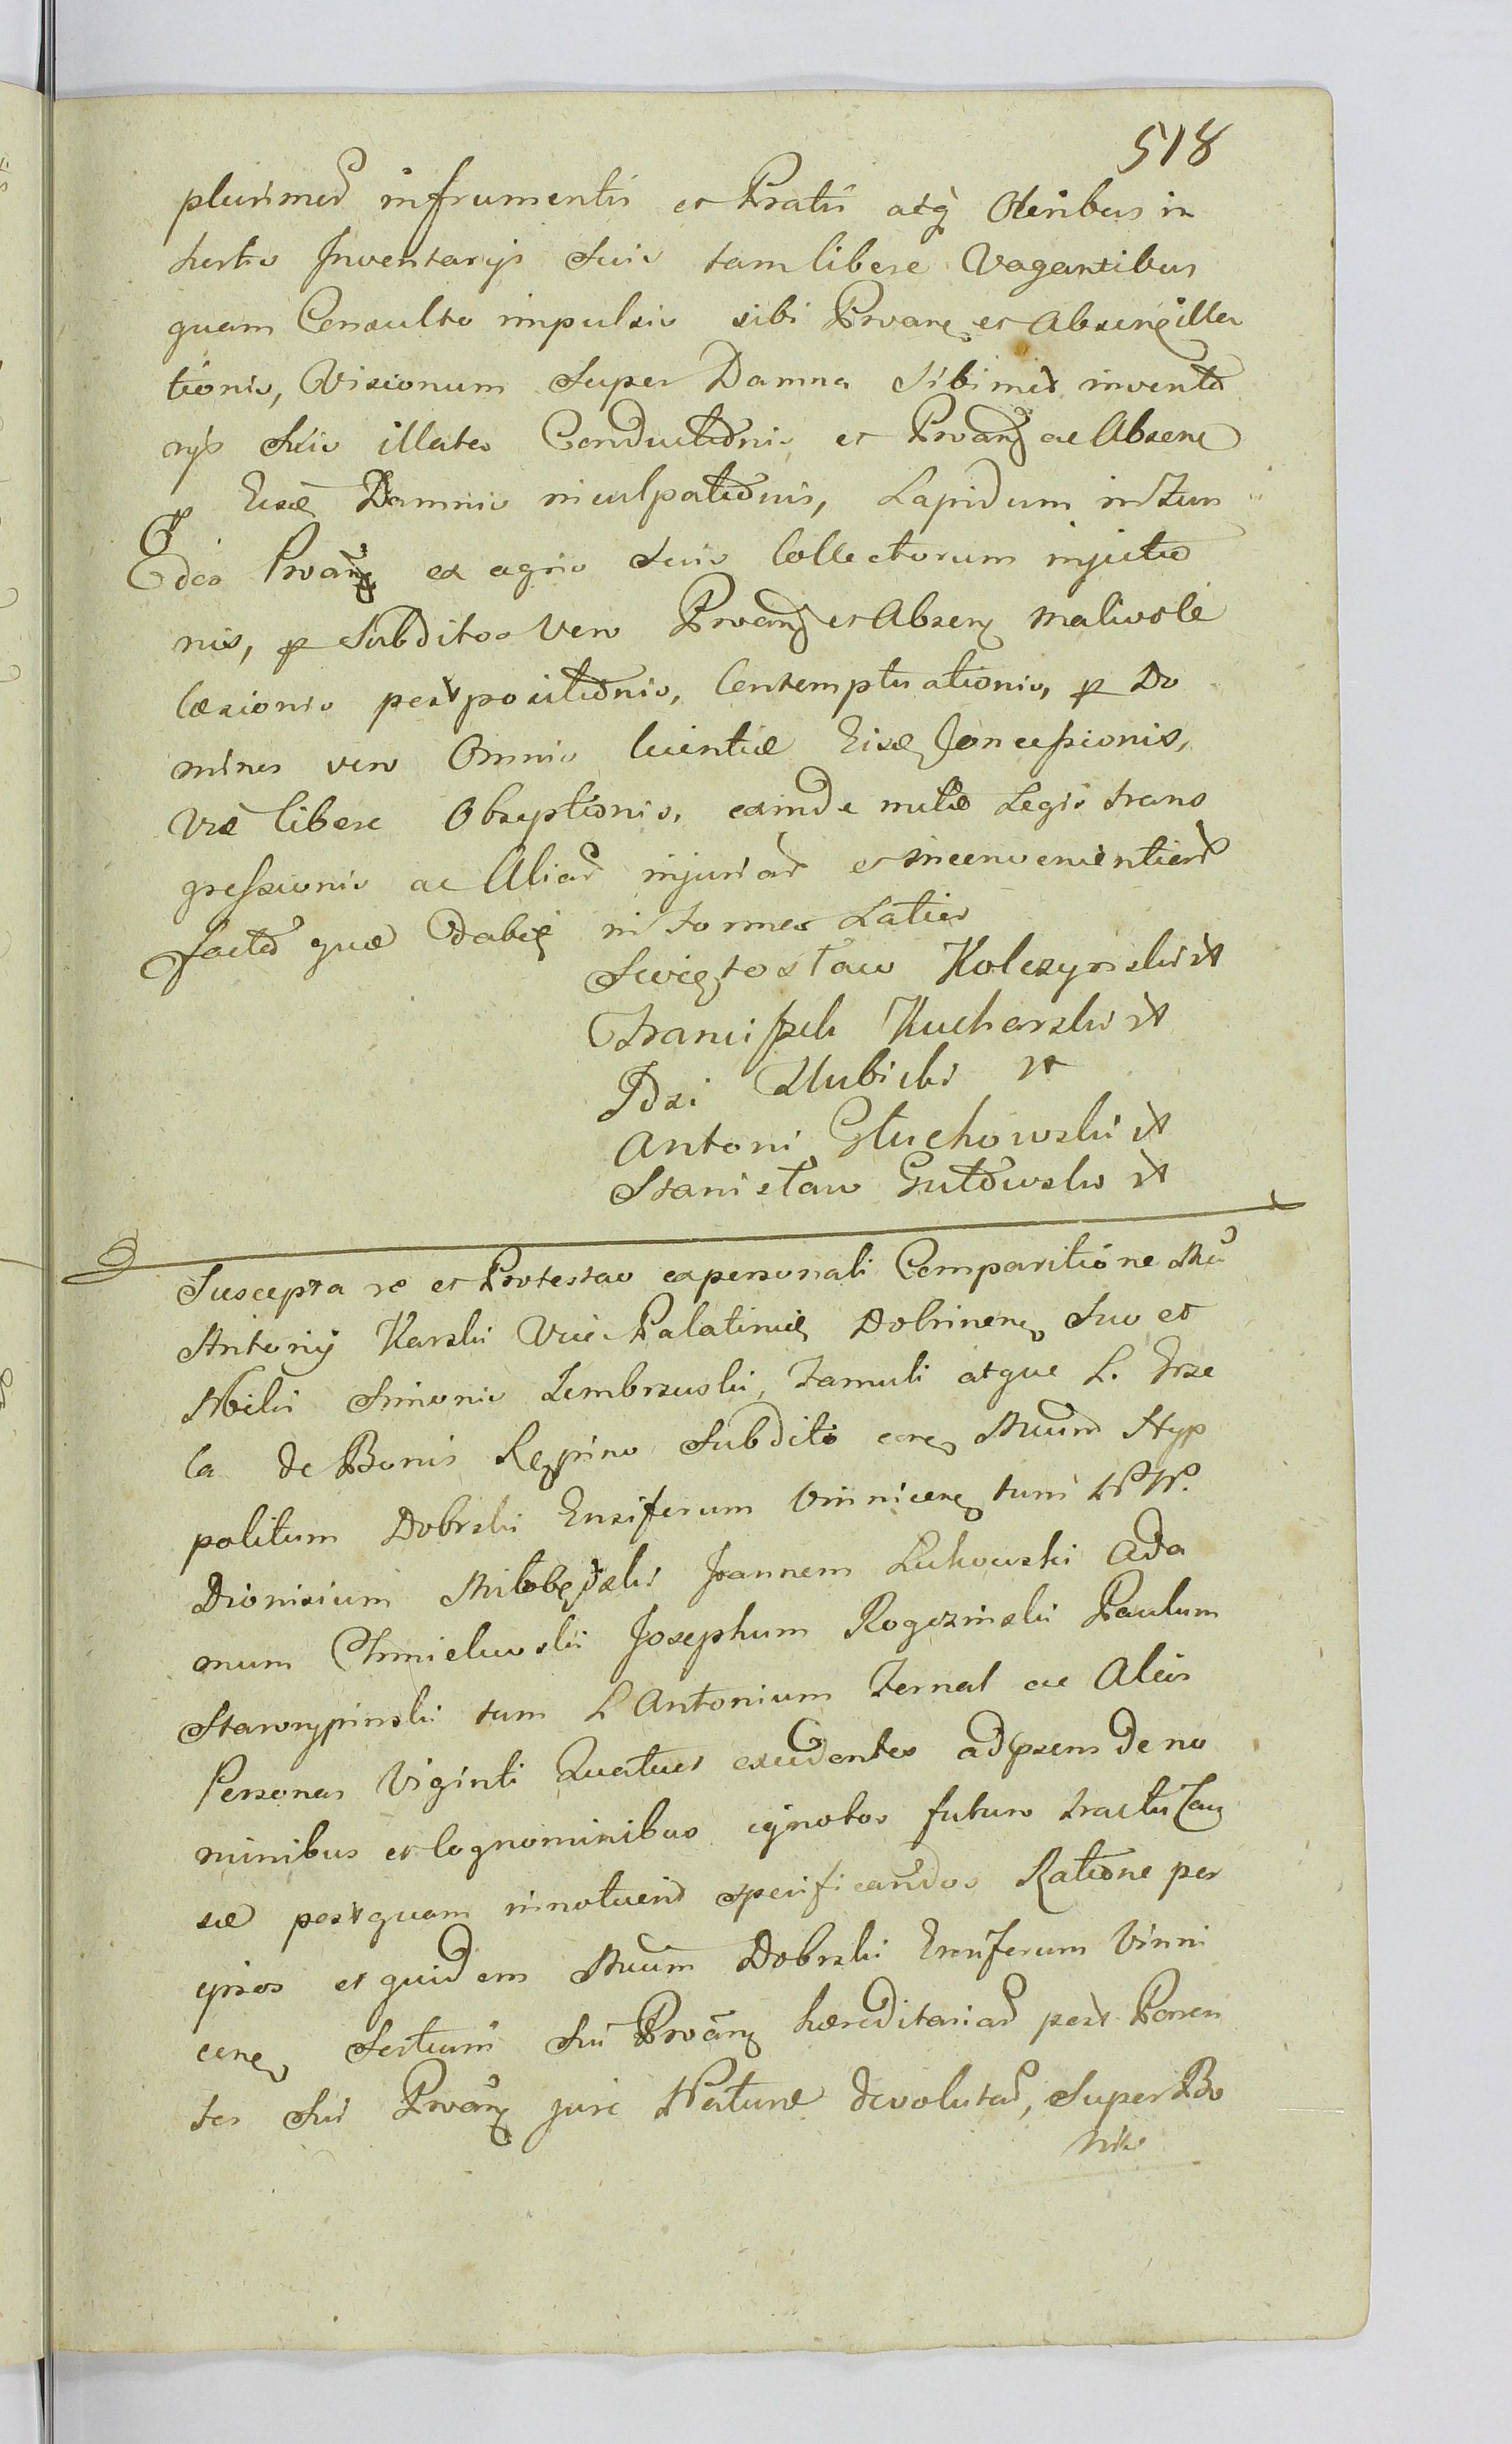 518
plurimor infrumentis et Pratis atq Oleribus in
horto Inventarys Suis tam libere Vagantibus
quam Consulto impulsis sibi Prvane et Absenq illa
tionis, Visionum Super Damna Sibimet inventa
rys Suis illata Conductionis et Prvanq ac Absene
Eisdē Damnis inculpationis, Lapidum in Fun
dos Prvanq ex agris Suis Collectorum injectio
nis, p Subditos Vero Prvanq et Absenq malivole
læsionis postpositionis, Contemptuationis, p Do
minos vero Omnis licentiæ Eisdē Concessionis,
Viæ libere Obseptionis, exinde mutæ Legis trans
gressionis ac Aliar injuriar et inconvenientiar
factor quæ dabit in forma Latius
Swiętosław Kolczynski
Franciszek Kucharski
Idzi Klubicki
Antoni Głuchowski
Stanisław Gutowski
Suscepta ē et Protestao expersonali Comparitione
Antony Karski Vice Palatini Dobrinen Suo et
Nobilis Simonis Zembrzuski, Famuli atque L. Grze
la de Bonis Rępino Subditi Muum Hyp
politum Dobrski Ensiferum Vinnicenę tum NN.
Dionisium Miłobędzki Joannem Lukowski Ada
mum Chmielewski Josephum Rogozinski Paulum
Starorypinski tum L Antonium Fernal ac Alias
Personas Viginti Quatuor excedentes adpsens de no
minibus et Cognominibus ignotos futuro tractu Cau
sæ postquam innotuerit specificandos Ratione per
ipsos et quidem Muum Dobrski Ensiferum Vinni
cenę Sortium Sui Prvanq hæreditariar post Paren
tes Sui Prvanq jure Naturæ devolutar, Super Bo
nis